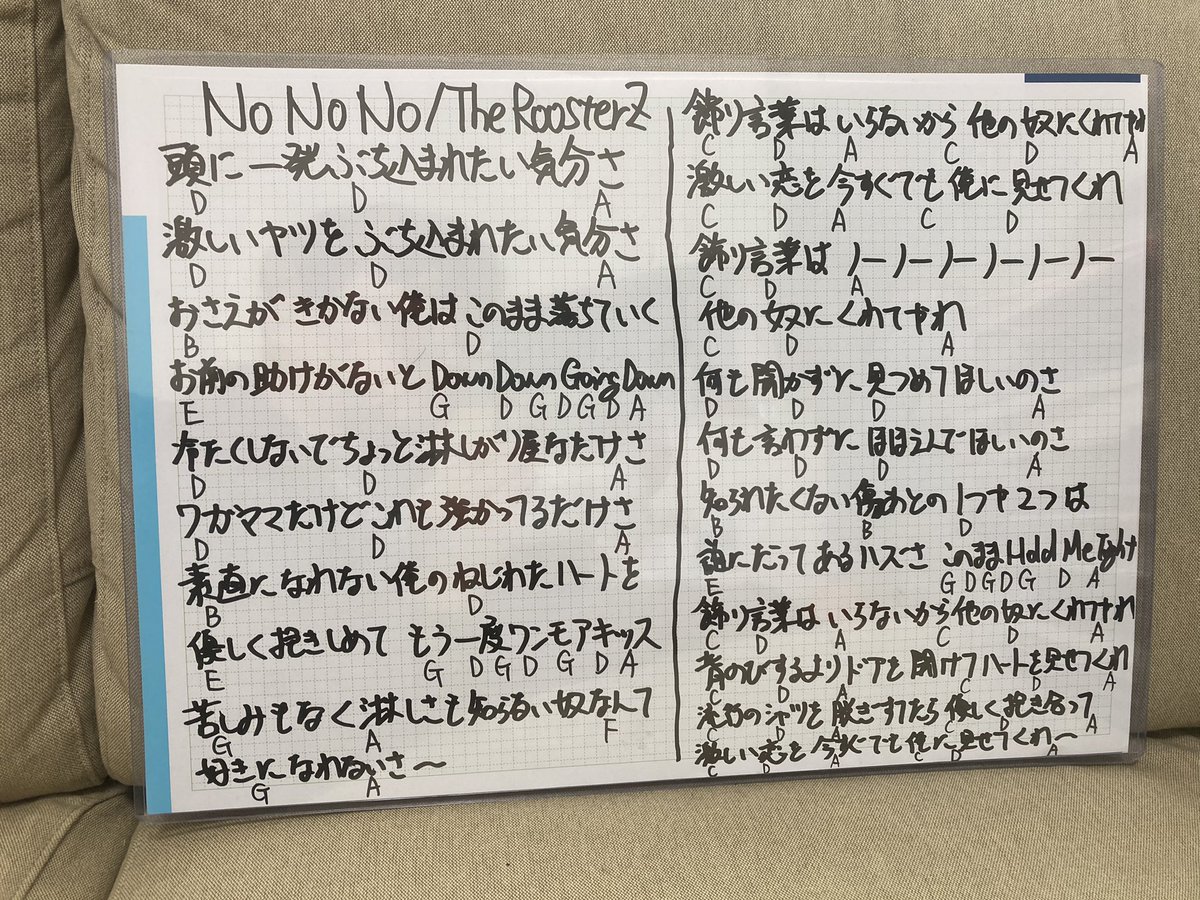 No No No/The RoosterZ
頭に一発ぶち込まれたい気分さ
D D A
激しいヤツをぶち込まれたい気分さ
D D A
おさえがきかない俺はこのまま落ちていく
B D
お前の助けがないと Down Down Going Down
E G D G D G D A
冷たくしないでちょっと淋しがり屋なだけさ
D D A
ワガママだけどこれも強がってるだけさ
D D A
素直になれない俺のねじれたハートを
B D
優しく抱きしめて もう一度ワンモアキッス
E G D G D G D A
苦しみもなく淋しさも知らない奴なんて
G A F
好きになれないさ〜
G A
飾り言葉はいらないから他の奴にくれてやれ
C D A C D A
激しい恋を今すぐでも俺に見せてくれ
C D A C D
飾り言葉は ノーノーノーノーノーノー
C D A
他の奴にくれてやれ
C D A
何も聞かずに見つめてほしいのさ
D D D A
何も言わずにほほえんでほしいのさ
D D D A
知られたくない傷あとの1つや2つは
B B D
誰にだってあるハズさ このままHold Me Tight
E G D G D G D A
飾り言葉はいらないから他の奴にくれてやれ
C D A C D A
背のびするよりドアを開けてハートを見せてくれ
C D A C D A
シャツを脱ぎすてたら優しく抱き合って
C D A C D A
激しい恋を今すぐでも俺に見せてくれ〜
C D A C D A